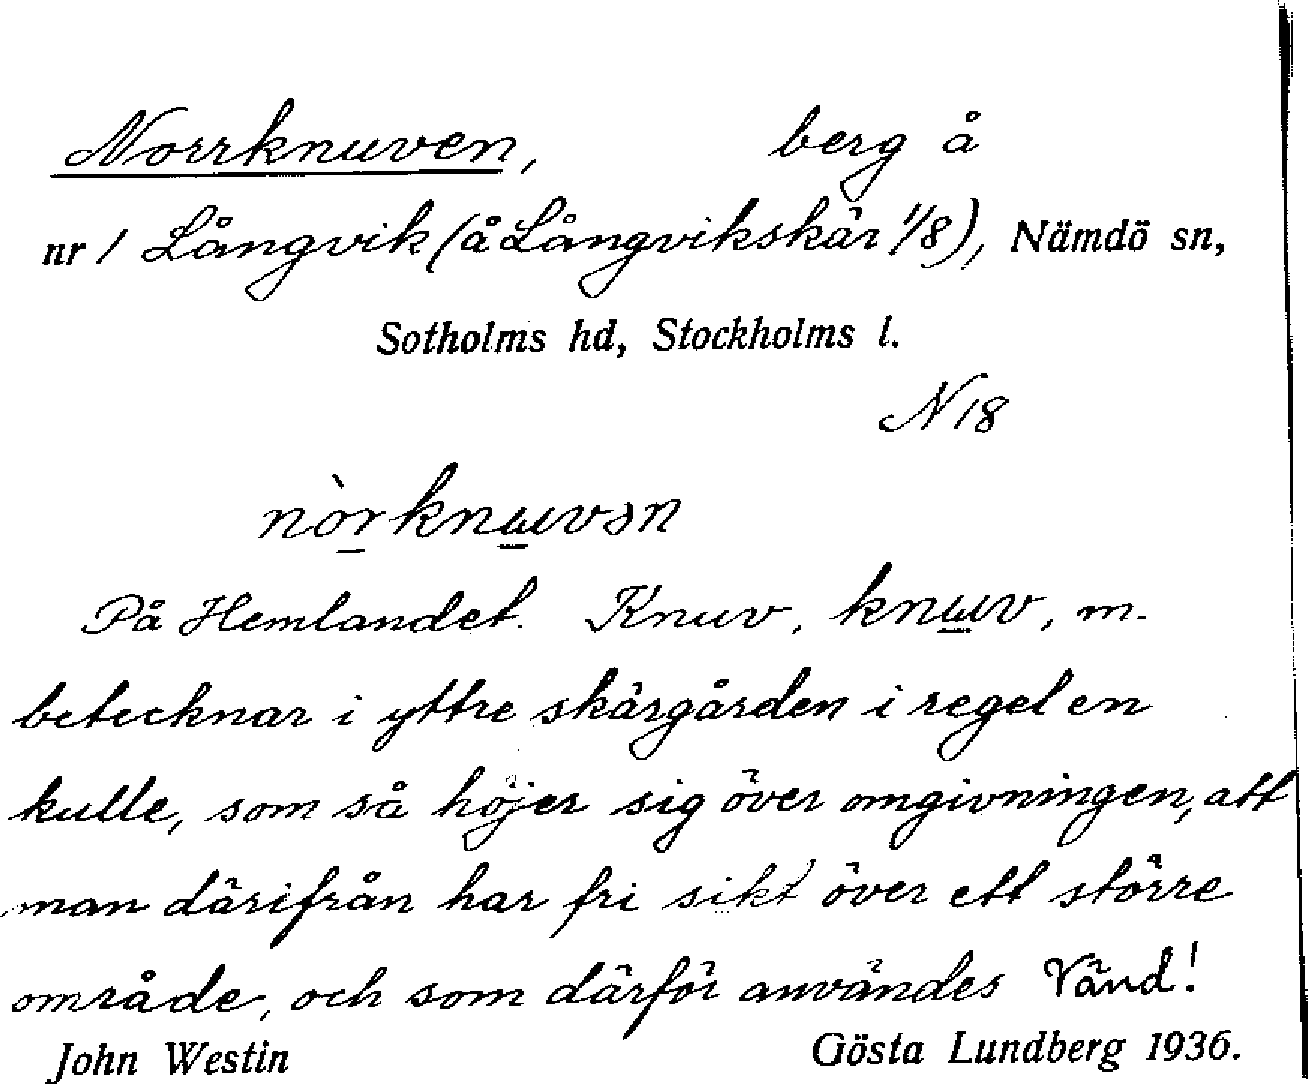 Norrknuven, berg å
nr 1 Långvik (å Långvikskär 1/8), Nämdö sn,
Sotholms hd, Stockholms l.
N 18
nòrknɯvən
På Hemlandet. Knuv, knɯv, m.
betecknar i yttre skärgården i regel en
kulle, som så höjer sig över omgivningen, att
man därifrån har fri sikt över ett större
område, och som därför användes Vänd!
John Westin Gösta Lundberg 1936.